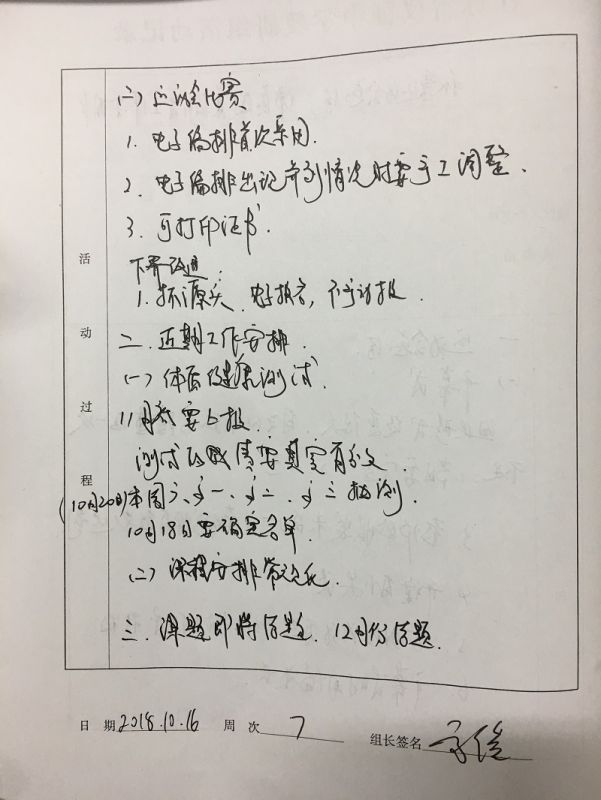 (二) 运动会比赛
1. 电子编排首次采用.
2. 电子编排出记 情况时要手工调整.
3. 可打印证书.
下
1. 抓源头. 电子报名, 不手动报.
二. 近期工作安排.
(一) 体质健康测试.
11月底要上报.
测试 需要真实有效.
(10月20日)本周 一、 二、 三抽测.
10月18日要确定名单.
(二) 课程安排常态化.
三. 课题即将结题. 12月份结题.
活动过程
日 期 2018.10.16 周 次 7 组长签名